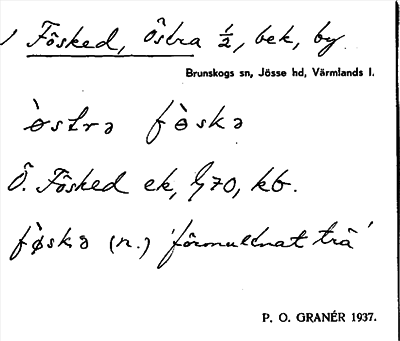 Fösked, Östra ½, bek, by.
Brunskogs sn, Jösse hd, Värmlands l.
östrə fòskə
Ö. Fösked ek, G70, kb.
fø̀skə (n.) 'förmultnat trä'
P. O. GRANÉR 1937.